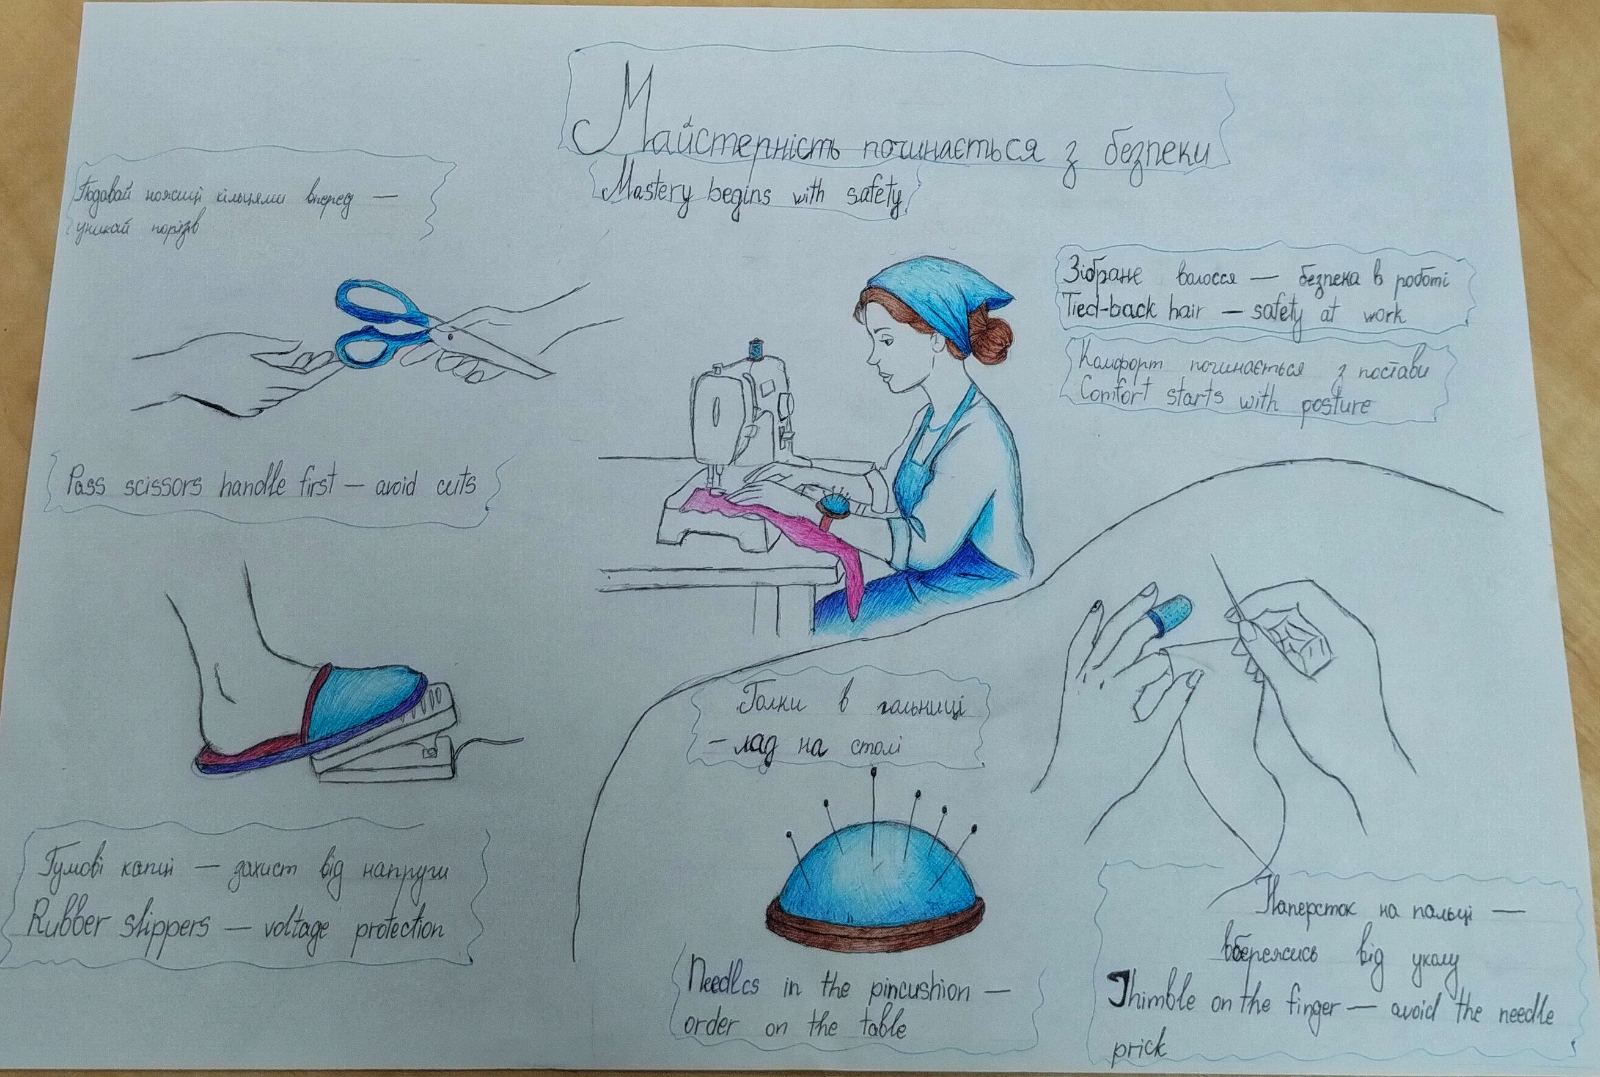 Майстерність починається з безпеки
Mastery begins with safety
Подавай ножиці кільцями вперед —
уникай порізів
Pass scissors handle first — avoid cuts
Зібране волосся — безпека в роботі
Tied-back hair — safety at work
Комфорт починається з постави
Comfort starts with posture
Гумові капці — захист від напруги
Rubber slippers — voltage protection
Голки в гольниці
— лад на столі
Needles in the pincushion —
order on the table
Наперсток на пальці —
вбережись від уколу
Thimble on the finger — avoid the needle
prick